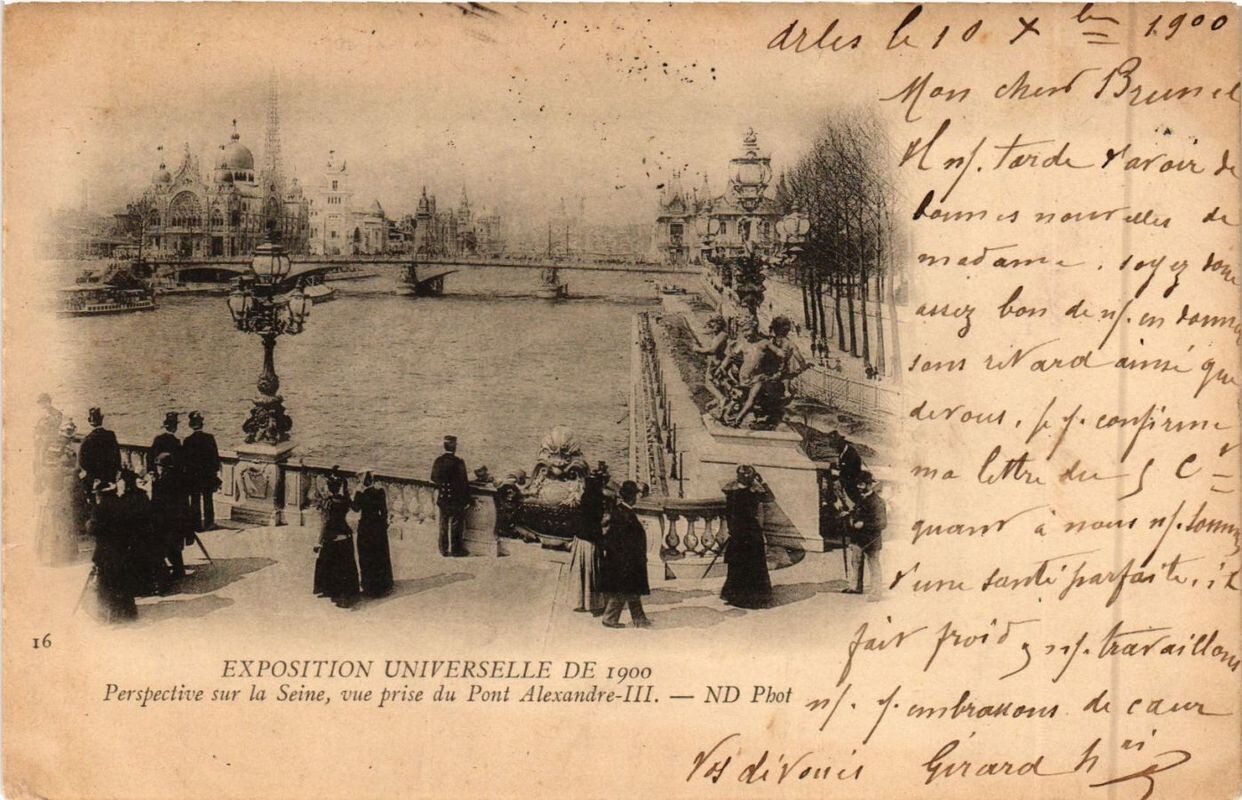 Arles le 10 Xbre 1900
Mon cher Brunel
Il ns/. tarde d'avoir de
bonnes nouvelles de
madame. soyez donc
assez bon de ns/. en donner
sans retard ainsi que
de vous. je v. confirme
ma lettre du 5 Ct
quant à nous ns/. sommes
d'une santé parfaite, il
fait froid, ns/. travaillons
ns/. v. embrassons de cœur
Vos dévoués Girard
16
EXPOSITION UNIVERSELLE DE 1900
Perspective sur la Seine, vue prise du Pont Alexandre-III. — ND Phot